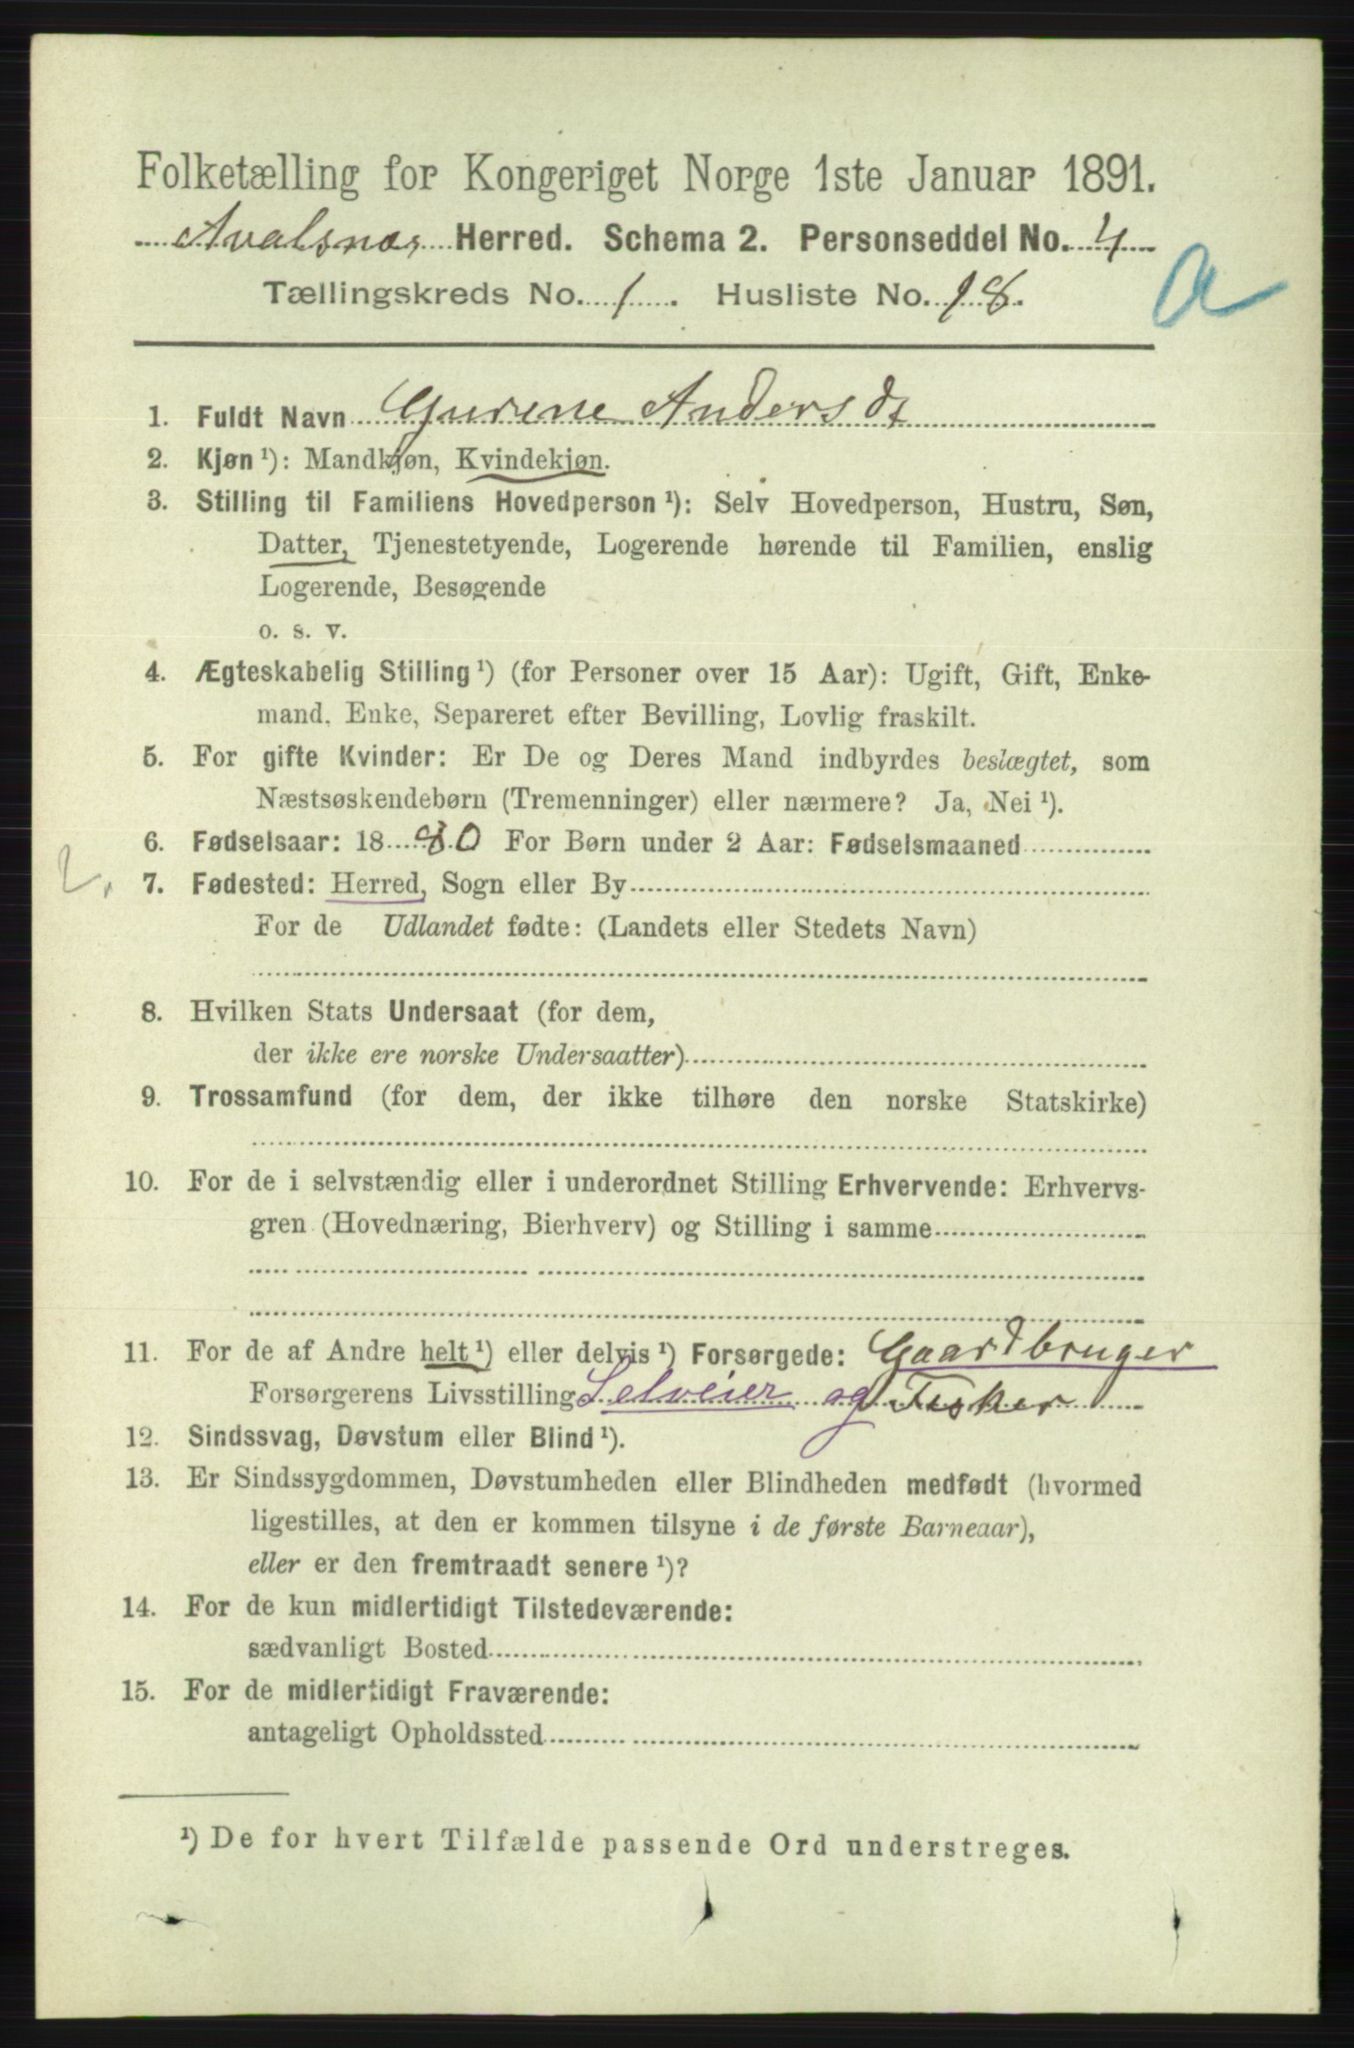 Folketælling for Kongeriget Norge 1ste Januar 1891.
Avalsnæs Herred. Schema 2. Personseddel No. 4
Tællingskreds No. 1. Husliste No. 18.
a
1. Fuldt Navn Gurine Andersdt
2. Kjøn ¹): Mandkjøn, Kvindekjøn.
3. Stilling til Familiens Hovedperson ¹): Selv Hovedperson, Hustru, Søn,
Datter, Tjenestetyende, Logerende hørende til Familien, enslig
Logerende, Besøgende
o. s. v.
4. Ægteskabelig Stilling ¹) (for Personer over 15 Aar): Ugift, Gift, Enke-
mand, Enke, Separeret efter Bevilling, Lovlig fraskilt.
5. For gifte Kvinder: Er De og Deres Mand indbyrdes beslægtet, som
Næstsøskendebørn (Tremenninger) eller nærmere? Ja, Nei ¹).
6. Fødselsaar: 1880 For Børn under 2 Aar: Fødselsmaaned
2. 7. Fødested: Herred, Sogn eller By
For de Udlandet fødte: (Landets eller Stedets Navn)
8. Hvilken Stats Undersaat (for dem,
der ikke ere norske Undersaatter)
9. Trossamfund (for dem, der ikke tilhøre den norske Statskirke)
10. For de i selvstændig eller i underordnet Stilling Erhvervende: Erhvervs-
gren (Hovednæring, Bierhverv) og Stilling i samme
11. For de af Andre helt ¹) eller delvis ¹) Forsørgede: Gaardbruger
Forsørgerens Livsstilling Selveier og Fisker
12. Sindssvag, Døvstum eller Blind ¹).
13. Er Sindssygdommen, Døvstumheden eller Blindheden medfødt (hvormed
ligestilles, at den er kommen tilsyne i de første Barneaar),
eller er den fremtraadt senere ¹)?
14. For de kun midlertidigt Tilstedeværende:
sædvanligt Bosted
15. For de midlertidigt Fraværende:
antageligt Opholdssted
¹) De for hvert Tilfælde passende Ord understreges.